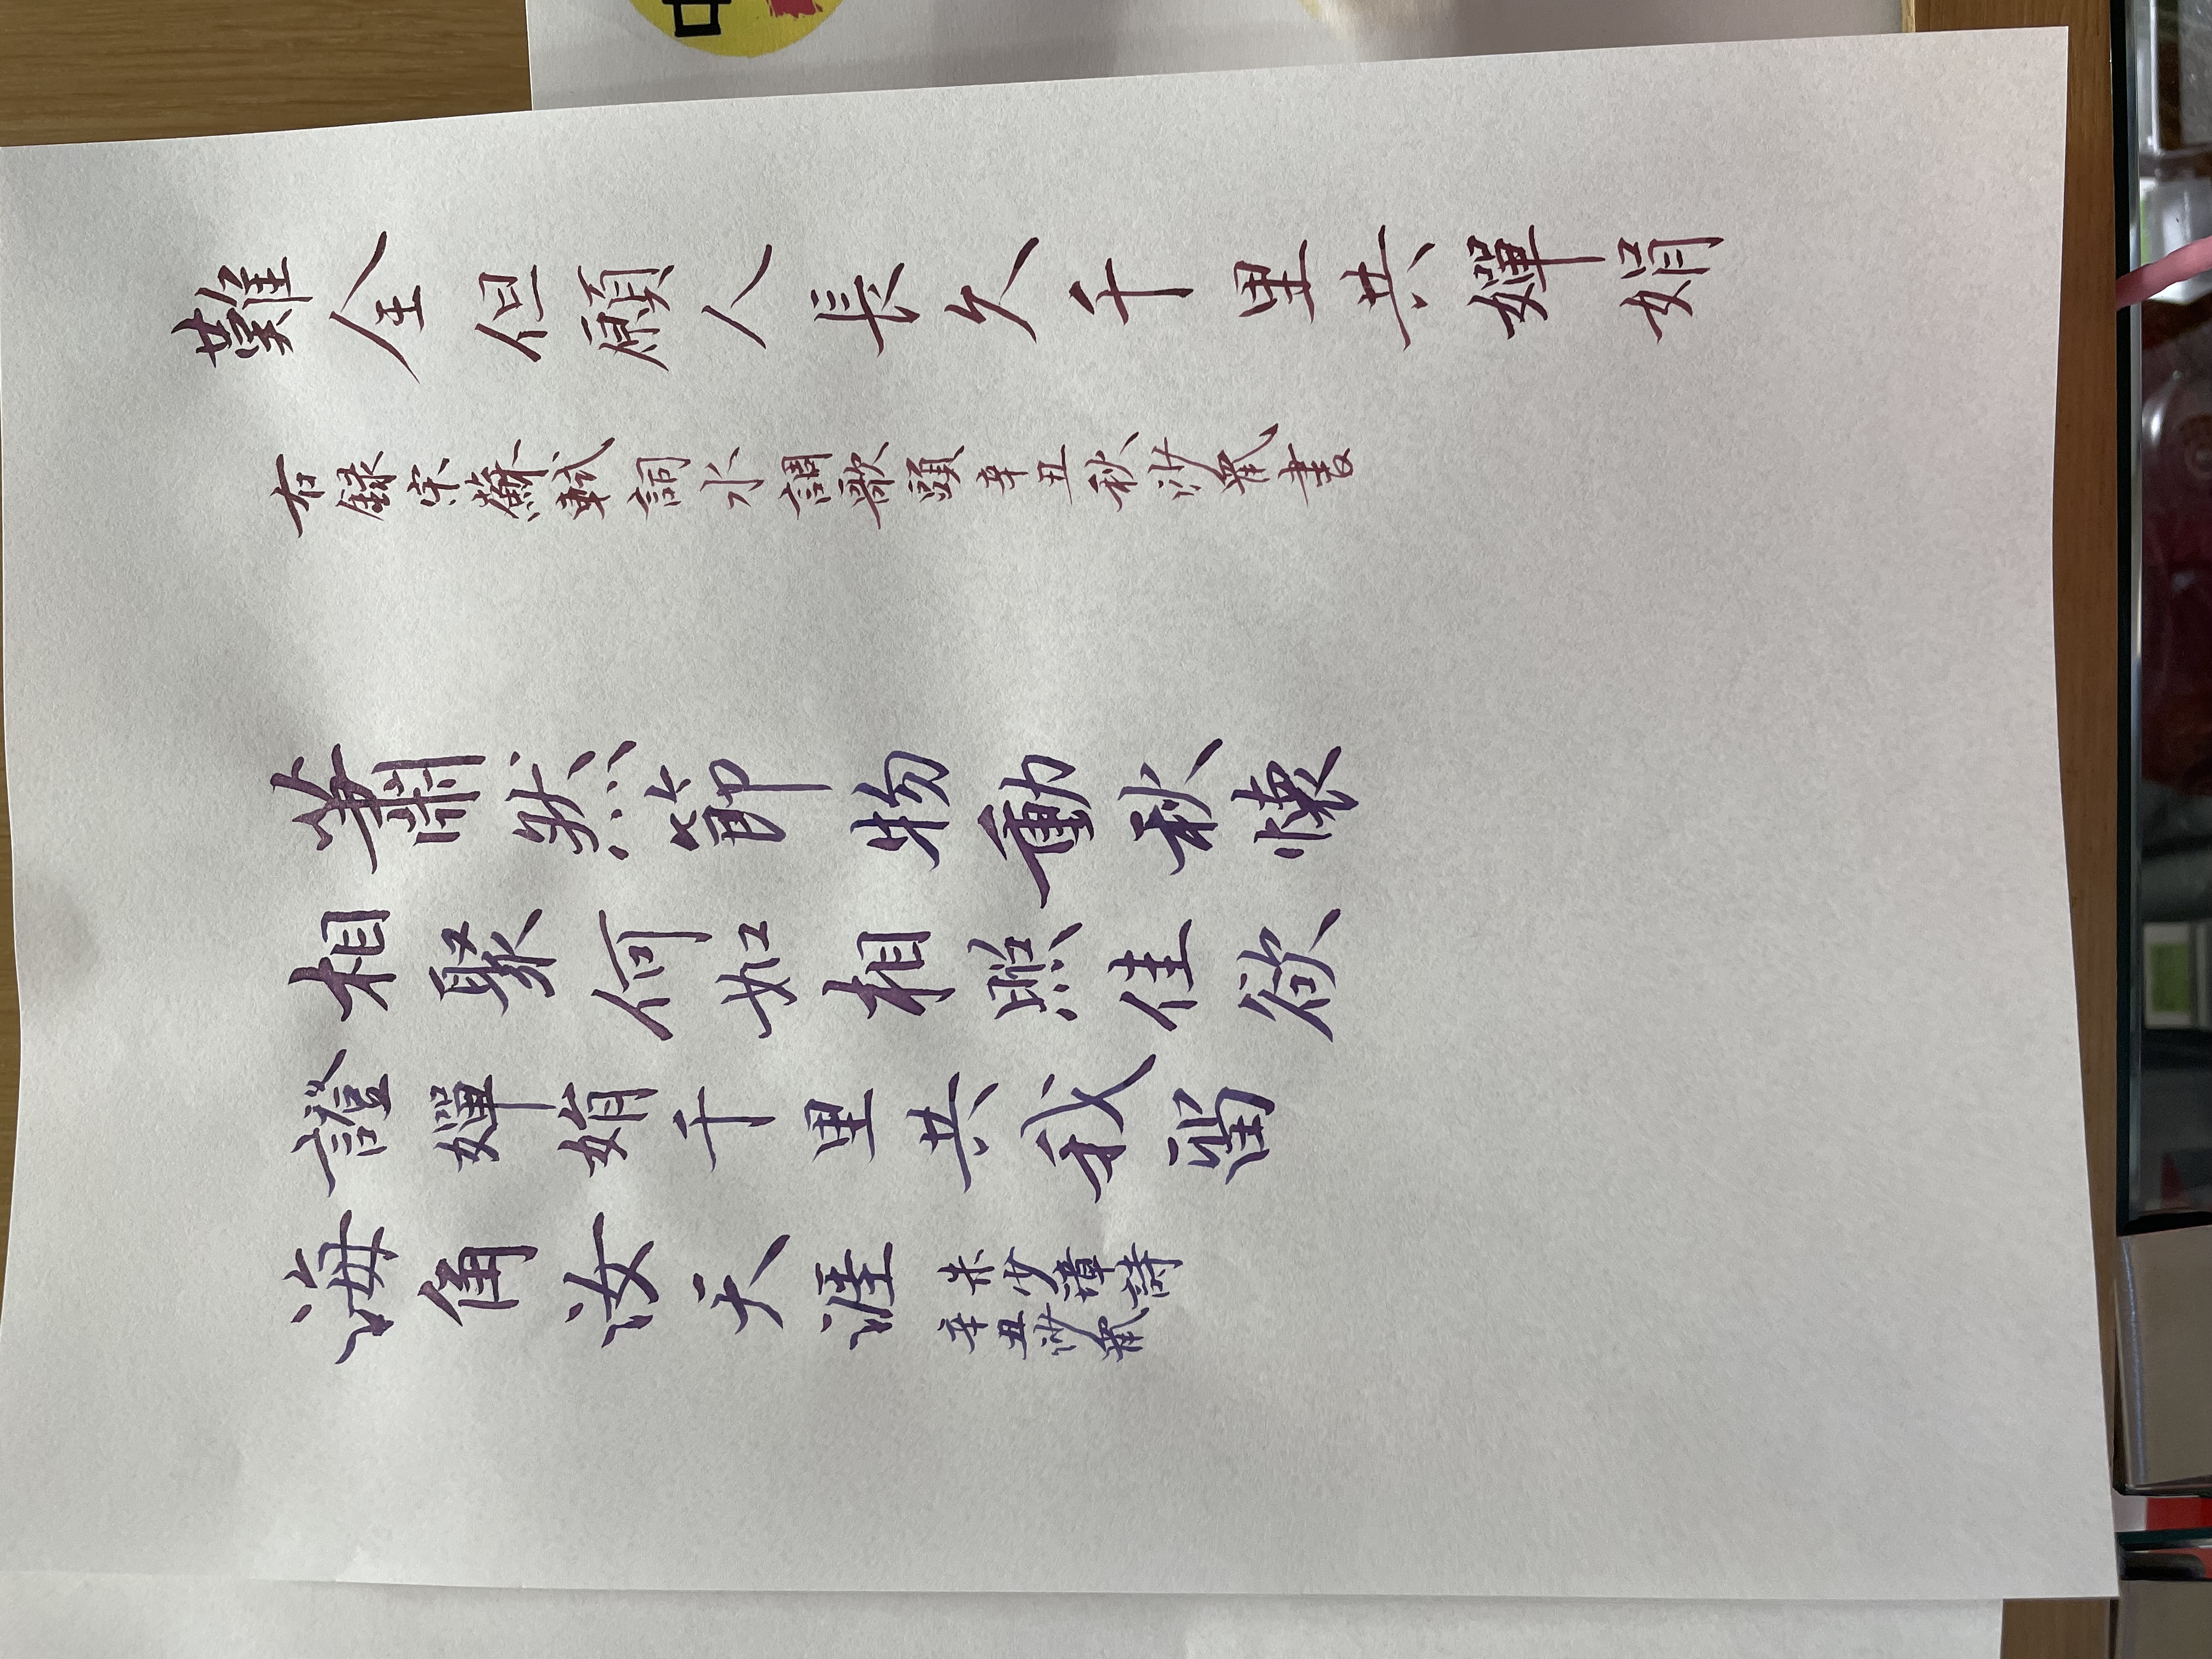 難全但願人長久千里共嬋娟
右錄宋蘇軾詞水調歌頭辛丑秋書
蕭然節物動秋懷
相聚何如相照佳欲
證嬋娟千里共我留
海角汝天涯
朱少璋詩
辛丑